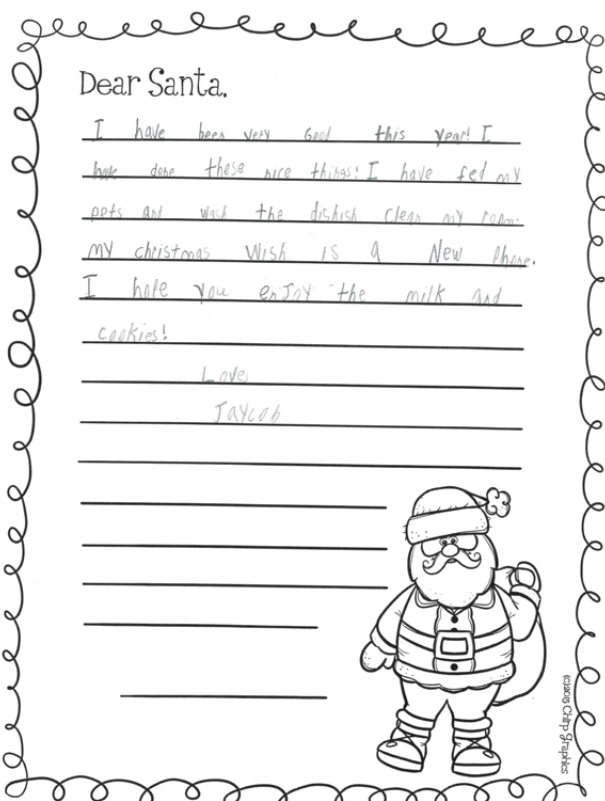 Dear Santa,
I have been very Good this year! I
have done these nice things: I have fed my
pets and wash the dishish clean my room.
my christmas wish is a New Phone.
I hope you enJoy the milk and
cookies!
Love
Jaycob
(c)2015 Chirp Graphics